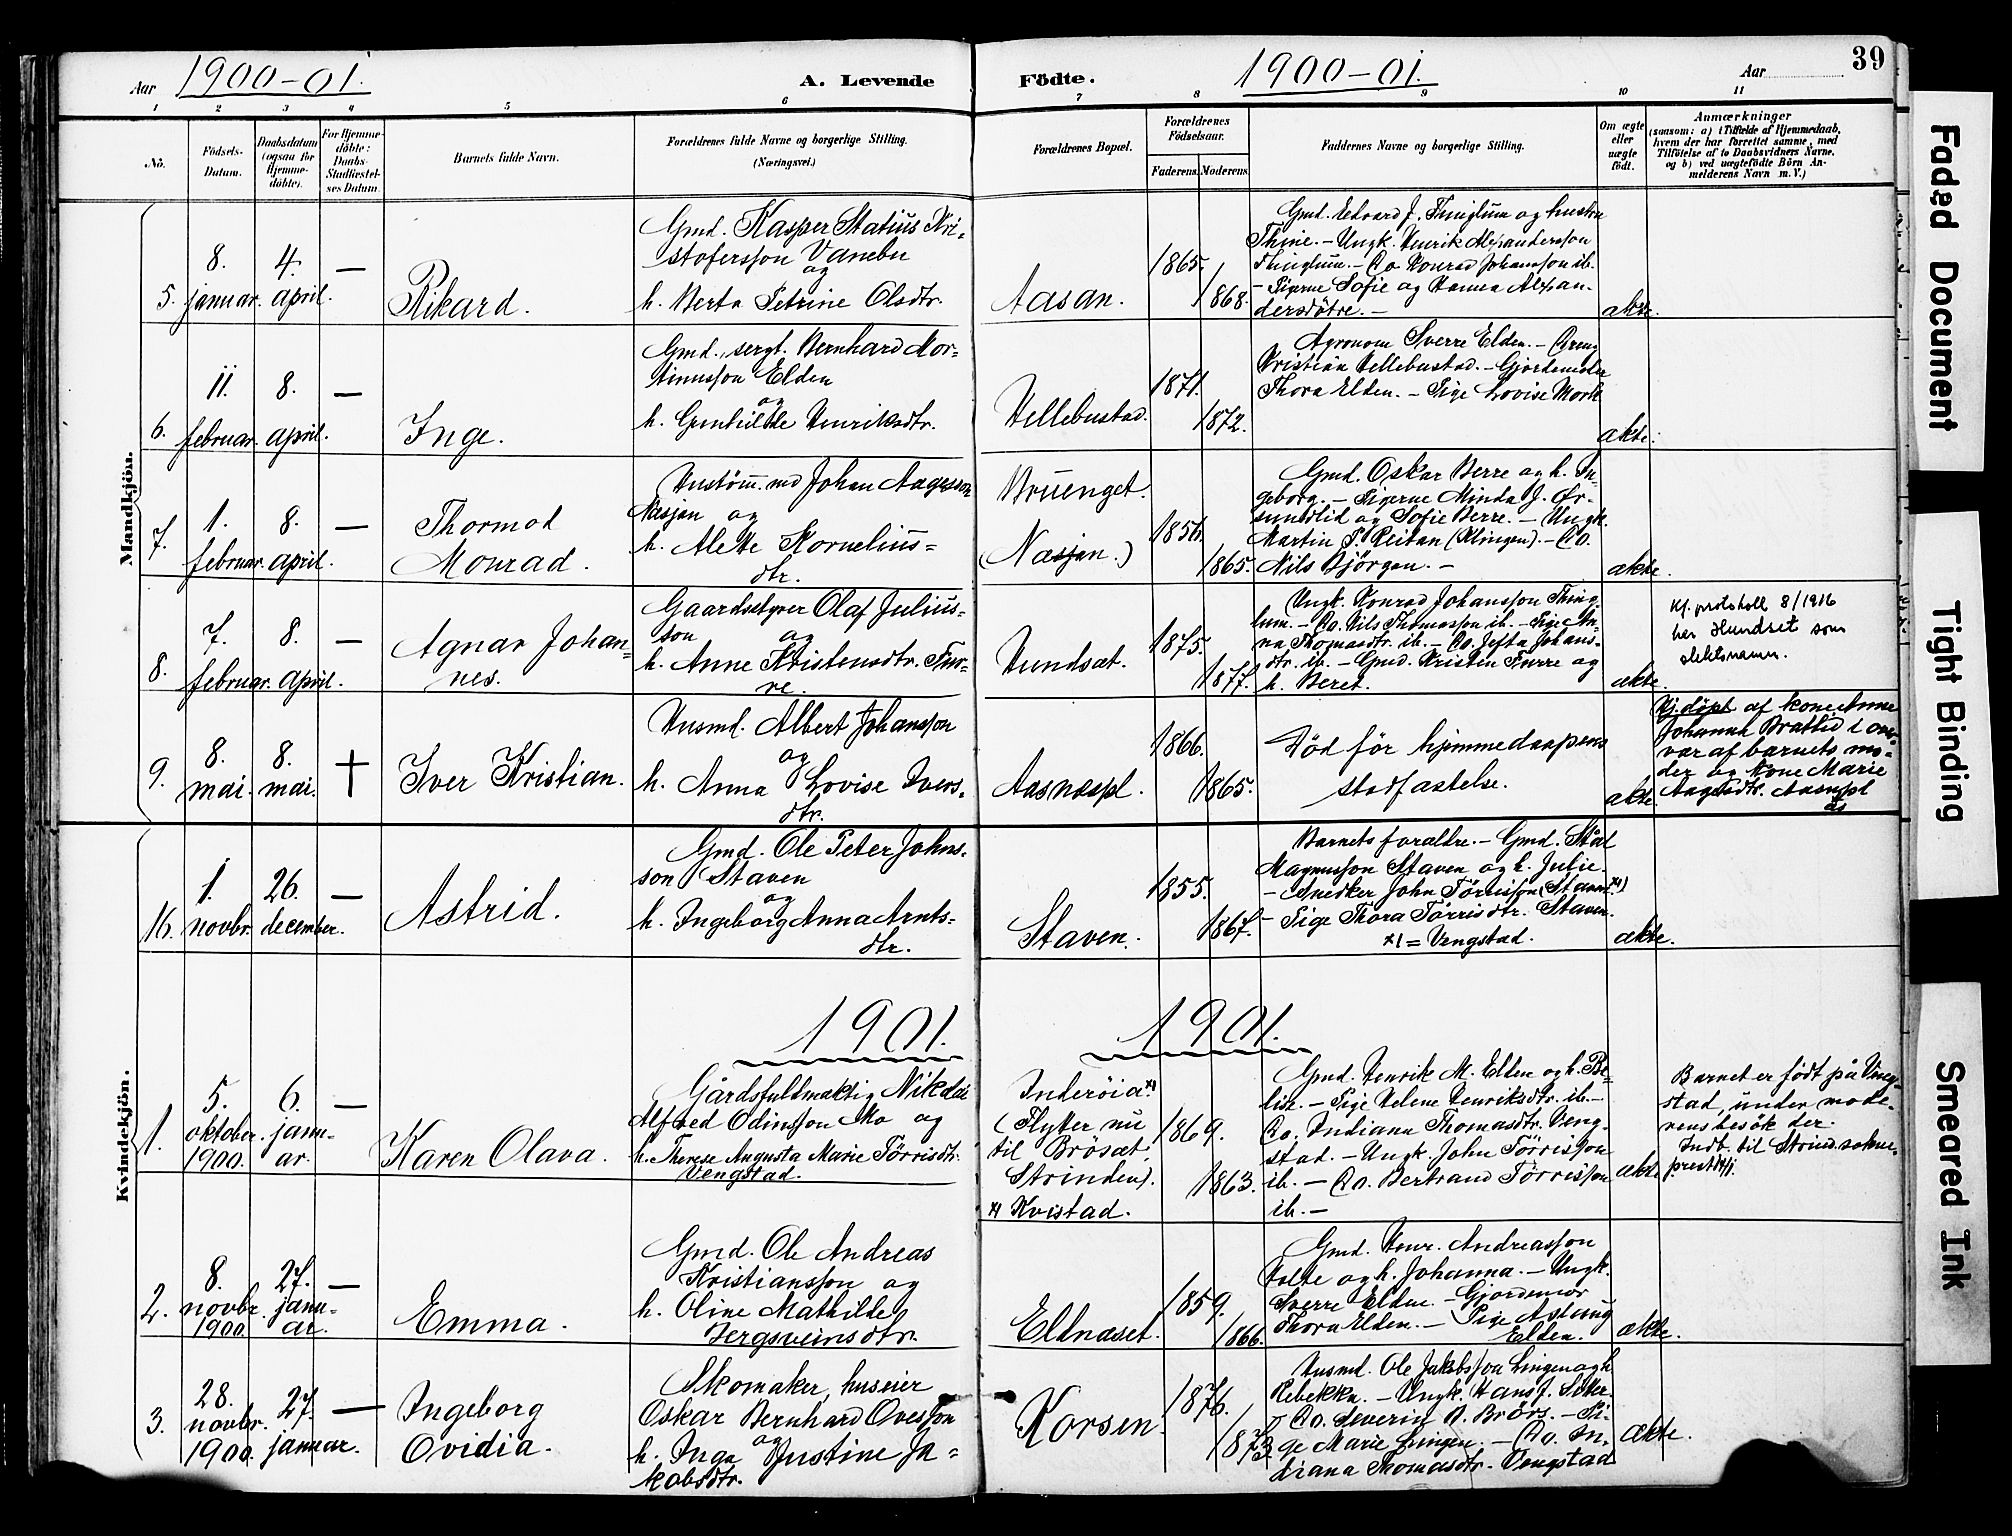 1900-01.
Aar
A. Levende
Födte.
1900-01.
Aar
39
1 2 3 4 5 6 7 8 9 10 11
No.
Födsels-Datum.
Daabsdatum (ogsaa for Hjemme-döbte).
For Hjemme-döbte: Daabs-Stadfæstel-ses Datum.
Barnets fulde Navn.
Forældrenes fulde Navne og borgerlige Stilling. (Næringsvei.)
Forældrenes Bopæl.
Forældrenes Födselsaar.
Faderens. Moderens.
Faddernes Navne og borgerlige Stilling.
Om ægte eller uægte födt.
Anmærkninger
(saasom: a) i Tilfælde af Hjemmedaab, hvem der har forrettet samme, med Tilföielse af to Daabsvidners Navne, og b) ved uægtefödte Börn An-melderens Navn m. V.)
Mandkjön.
5.
8. januar.
4. april.
—
Rikard.
Gmd. Kasper Statius Kri-
stofersson Vanebu
og
h. Berta Petrine Olsdtr.
Aasan.
1865.
1868.
Gmd. Edvard J. Thinglum og hustru
Thine. — Ungk. Henrik Alexandersson
Thinglum. — Do Konrad Johansson ib.
— Pigerne Sofie og Hanna Alexan-
dersdötre. —
ækte.
6.
11. februar.
8. april.
—
Inge.
Gmd., sergt. Bernhard Mor-
tinusson Elden
og
h. Gunhilde Henriksdtr.
Hellebustad.
1871.
1872.
Agronom Sverre Elden. —
Kristian Hellebustad. — Gjordemoder
Thora Elden. — Pige Lovise Mork
ækte.
7.
1. februar.
8. april.
—
Thormod
Monrad.
Hustöm.md Johan Aagesson
Næsjan og
h. Alette Kornelius-
dtr.
Bruenget.
(Næsjan.)
1856.
1865.
Gmd. Oskar Berre og h. In-
geborg. — Pigerne Minda J. Ör-
sundlid og Sofie Berre. — Ungk.
Martin P. Reitan (Klingen). — Do.
Nils Björgan. —
ækte.
8.
7. februar.
8. april.
—
Agnar Johan-
nes.
Gaardsstyrer Olaf Julius-
son og
h. Anne Kristensdtr. Fur-
re.
Hundsæt.
1875.
1877.
Ungk. Konrad Johansson Thing-
lum. — Do. Nils Thomasson ib. — Pige An-
na Thomasdtr. ib. — Do. Jefta Johans-
dtr. ib. — Gmd. Kristen Furre og
h. Beret.
ækte.
Kf. protokoll 8/1916
har Hundset som
slektsnavn.
9.
8. mai.
8. mai.
†
Iver Kristian.
Husmd. Albert Johansson
og
h. Anna Lovise Ivers-
dtr.
Aasnæspl.
1866.
1865.
Död för hjemmedaapens
stadfæstelse.
ækte.
Hj.döpt af kone Anne
Johanna Brattid i over-
vær af barnets mo-
der og kone Marie
Aagesdtr. Aasnæspl
Kvindekjön.
16.
1. novbr.
26. december.
—
Astrid.
Gmd. Ole Peter Johns-
son Staven
og
h. Ingeborg Anna Arnts-
dtr.
Staven.
1855.
1867.
Barnets forældre. — Gmd. Ståal
Magnusson Staven og h. Julie.
— Snedker John Törrisson (Staven x1)
— Pige Thora Törrisdtr. Staven.
x1 = Vengstad.
ækte.
1901.
1901.
1.
5. oktober. 1900.
6. janu-
ar.
—
Karen Olava.
Gårdsfuldmægtig Nikolai
Alfred Odinsson Mo og
h. Therese Augusta Marie Törrisdtr.
Vengstad.
Inderöia x1
(Flytter nu
til Brösæt,
Strinden).
x1 Kvistad.
1869.
1863.
Gmd. Henrik M. Elden og h. Be-
lise. — Pige Helene Henriksdtr. ib. —
Do. Indiana Thomasdtr. Veng-
stad. — Ungk. John Törrisson
ib. — Do. Bertrand Törrisson
ib. —
ækte
Barnet er født på Veng-
stad, under mode-
rens besök der.
Indb. til Strind. sokne-
prest
2.
8. novbr. 1900.
27. janu-
ar.
—
Emma.
Gmd. Ole Andreas
Kristiansson og
h. Oline Mathilde
Bergsveinsdtr.
Eldnæset.
1859.
1866.
Gmd. Henr. Andreasson
Holte og h. Johanna. — Ungk.
Sverre Elden. — Gjordemor
Thora Elden. — Pige Astrug
Elden.
ækte.
3.
28. novbr. 1900.
27. januar.
—
Ingeborg
Ovidia.
Skomaker, huseier
Oskar Bernhard Ovesson
og
h. Inga Justine Ja-
kobsdtr.
Korsen.
1876.
1873.
Husmd. Ole Jakobsson Lingen og h
Rebekka. — Ungk. Hans J. Sæter.
Do. Severin O. Brörs. — Pi-
ge Marie Lingen. — Do. In-
diana Thomasdtr. Vengstad
ækte.
Faded Document
Tight Binding
Smeared Ink